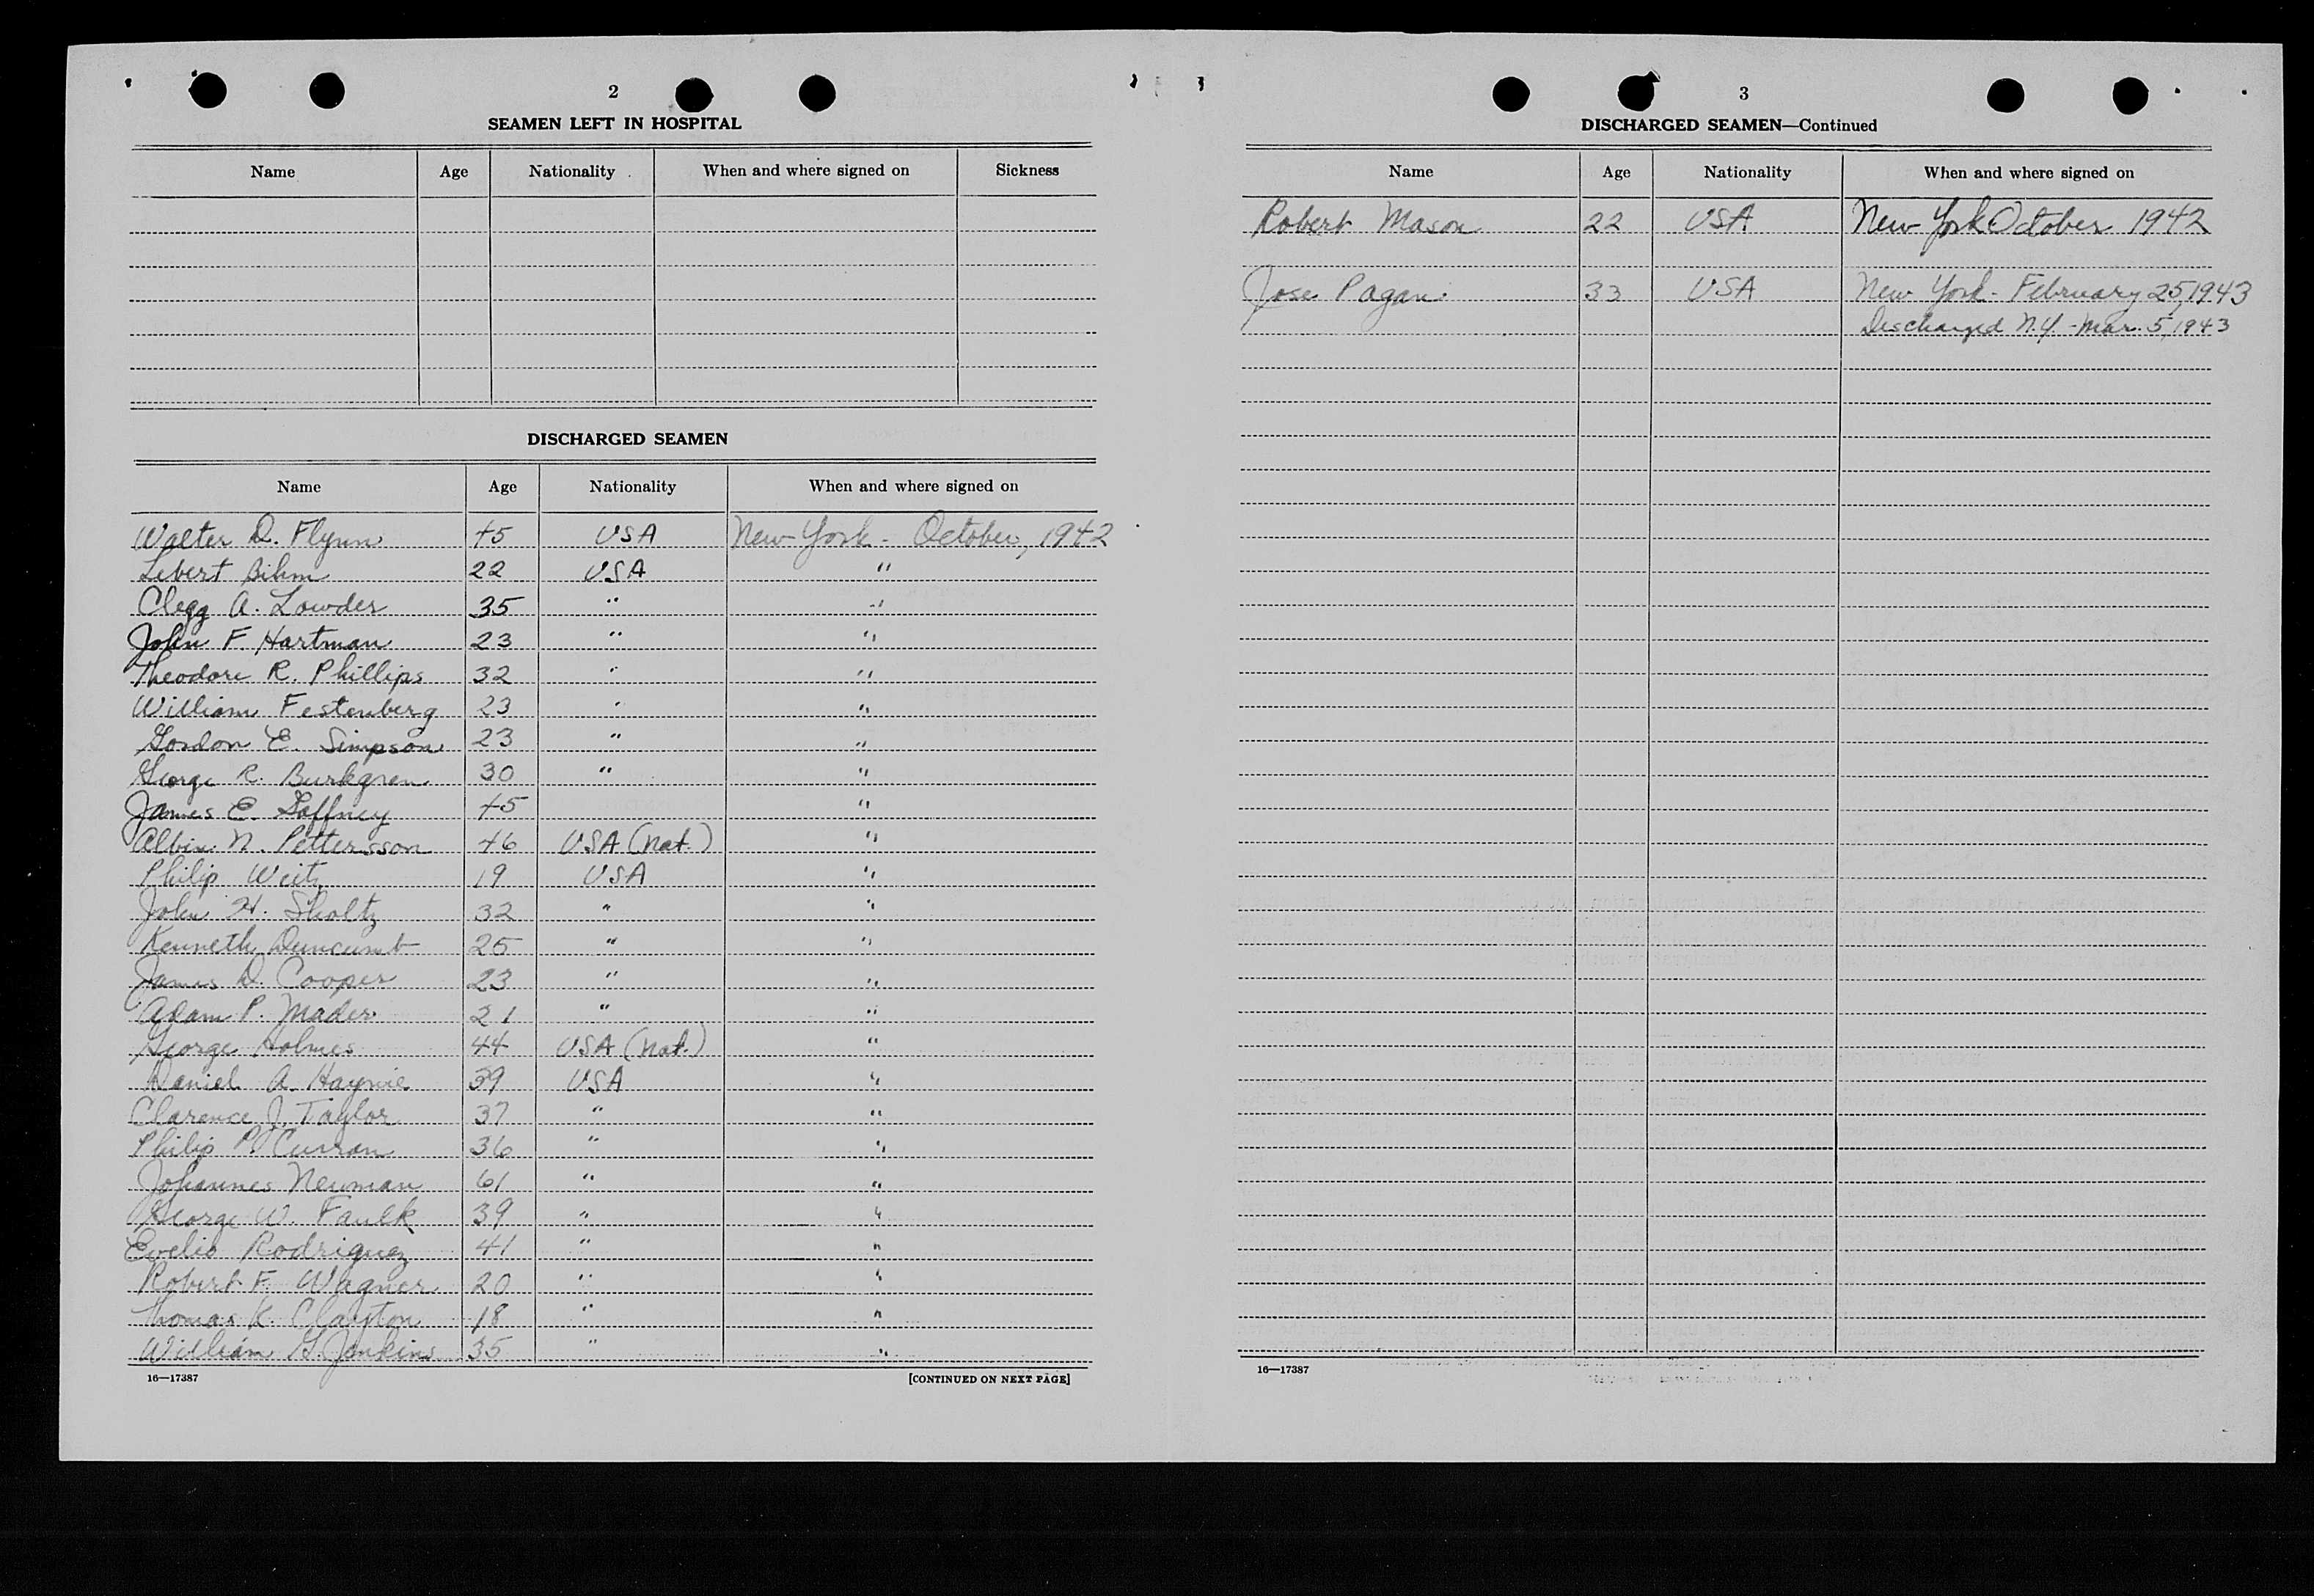 2
SEAMEN LEFT IN HOSPITAL
Name Age Nationality When and where signed on Sickness
DISCHARGED SEAMEN
Name Age Nationality When and where signed on
Walter D. Flynn 45 USA New York - October, 1942
Lebert Bihm 22 USA "
Clegg A. Lowder 35 " "
John F. Hartman 23 " "
Theodore R. Phillips 32 " "
William Festenberg 23 " "
Gordon E. Simpson 23 " "
George R. Burkgren 30 " "
James E. Gaffney 45 "
Albin N. Pettersson 46 USA (Nat.) "
Philip Weitz 19 USA "
John H. Sholtz 32 " "
Kenneth Duncumb 25 " "
James D. Cooper 23 " "
Adam P. Mader 21 " "
George Holmes 44 USA (Nat.) "
Daniel A. Haynie 39 USA "
Clarence J. Taylor 37 " "
Philip P. Curran 36 " "
Johannes Neuman 61 " "
George W. Faulk 39 " "
Evelio Rodriguez 41 " "
Robert F. Wagner 20 " "
Thomas K. Clayton 18 " "
William G. Jenkins 35 " "
16—17387 [CONTINUED ON NEXT PAGE]
3
DISCHARGED SEAMEN—Continued
Name Age Nationality When and where signed on
Robert Mason 22 USA New York October 1942
Jose Pagan 33 USA New York - February 25, 1943
Discharged N.Y. - Mar. 5, 1943
16—17387